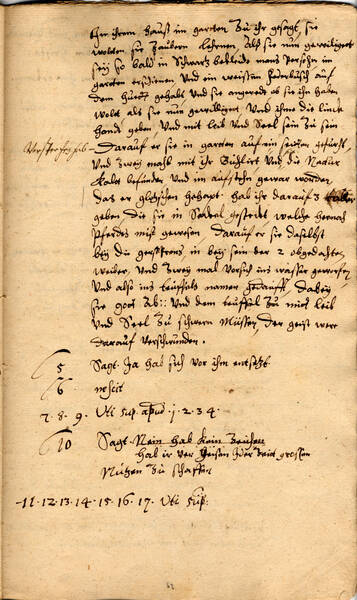 Ihr ihrem hauß im garten Zu ihr gesagt, sie
wolten sie Zaubern lehrnen, Als sie nun gewilliget
seÿ so bald in Schwartz bekleide mans Persohn im
garten erschienen Vnd ein weissen Federbusch auf
dem huedt gehabt, Vnd sie angeredt ob sie ihn haben
wolt als sie nun gewilliget, Vnd ihme die lincke
hand geben Vnd mit leib Vnd Seel sein Zu sein
Darauf er sie in garten auf ein seiten gefürt,
Vnd Zweÿ mahl mit ihr Buhlirt Vnd die Natur
Kalt befunden Vnd im aufstehn gewar worden,
das er gehabt, hab ihr darauf 3
geben die sie in gesteckt welche hernach
Pferdes mist gewesen, Darauf er sie daselbst
beÿ die in beÿ sein der 2 obgedachten
Weiber, Vnd Zweÿ mal Wasser geworfen
Vnd also ins teuffels namen getaufft, dabeÿ
sie gott Ab:, Vnd dem teuffel Zu mit leib
Vnd Seel Zu schwern Müssen, Der geist were
darauf verschwunden.
5 Sagt Ja hab sich vor ihm entsetzt
6 nescit
7. 8. 9. Vti sup. apud 1. 2. 3. 4.
10 Sagt Nein hab kein
hab ir der grossen
Nutzen Zu schaffen
11. 12. 13. 14. 15. 16. 17. Vti sup: